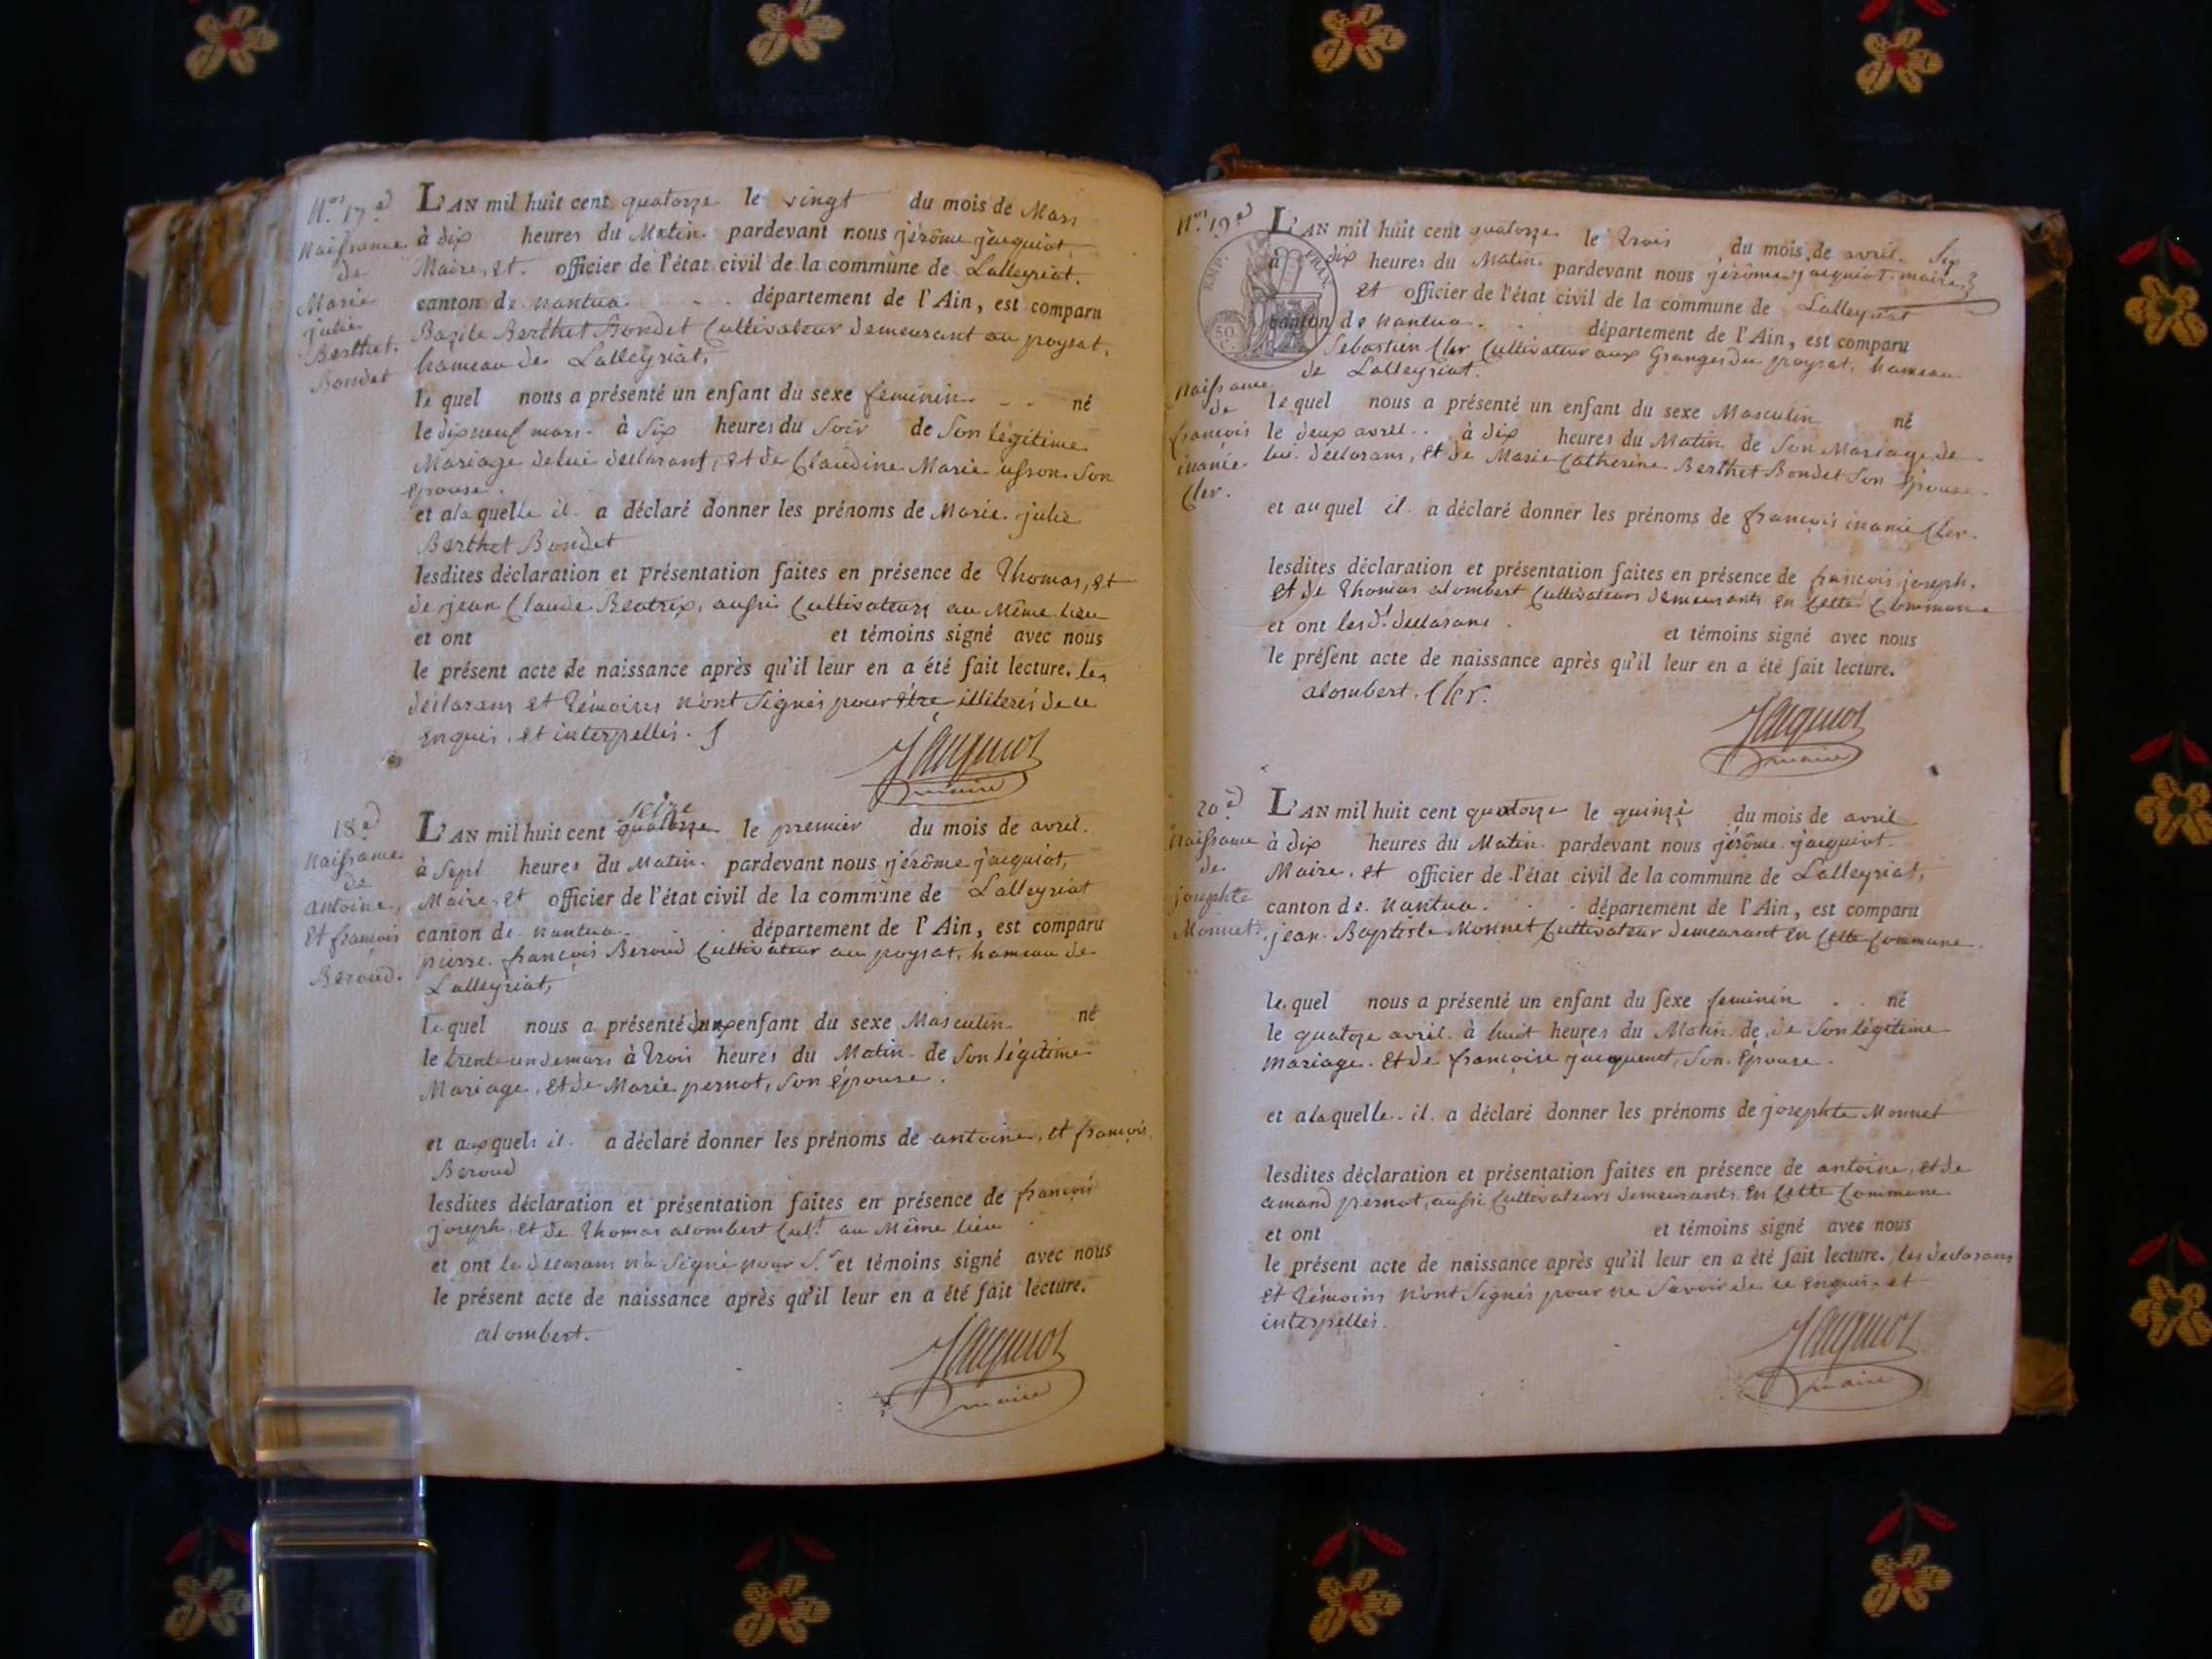 N.os 17.e
Naissance
de
Marie
julie
Berthet.
Bondet
L'AN mil huit cent quatorze le vingt du mois de Mars
à dix heures du Matin. pardevant nous jérôme jacquiot
Maire, et. officier de l'état civil de la commune de Lalleyriat.
canton de nantua. département de l'Ain, est comparu
Bazile Berthet Bondet Cultivateur demeurant au poysat,
hameau de Lalleyriat,
le quel nous a présenté un enfant du sexe feminin né
le dix neuf mars. à six heures du Soir de Son légitime
Mariage de lui declarant, et de Claudine Marie Son
épouse.
et a la quelle il a déclaré donner les prénoms de Marie julie
Berthet Bondet
lesdites déclaration et présentation faites en présence de Thomas, et
de jean Claude Beatrix, aussi Cultivateurs au Même lieu
et ont et témoins signé avec nous
le présent acte de naissance après qu'il leur en a été fait lecture. les
declarans et témoins n'ont Signés pour être illiterés de ce
enquis, et interpellés.
Jacquiot
maire
18.e
Naissance
de
antoine,
et françois
Beroud.
L'AN mil huit cent quatorze seize le premier du mois de avril.
à Sept heures du Matin. pardevant nous jérôme jacquiot,
Maire, et officier de l'état civil de la commune de Lalleyriat
canton de nantua. département de l'Ain, est comparu
pierre. françois Beroud Cultivateur au poysat, hameau de
Lalleyriat,
le quel nous a présenté deux enfant du sexe Masculin né
le trente un de mars à trois heures du Matin de Son légitime
Mariage, et de Marie pernot, son épouse.
et auxquels il a déclaré donner les prénoms de antoine, et françois
Beroud
lesdites déclaration et présentation faites en présence de françois
joseph, et de Thomas alombert Cult. au Même lieu
et ont le declarans n'a Signé pour et témoins signé avec nous
le présent acte de naissance après qu'il leur en a été fait lecture.
alombert.
Jacquiot
maire
N.os 19.e
EMP. FRAN.
50 C.
Naissance
de
françois
inanie
Cler.
L'AN mil huit cent quatorze le trois du mois de avril. Six
à dix heures du Matin. pardevant nous jérôme jacquiot. maire
et officier de l'état civil de la commune de Lalleyriat
canton de nantua. département de l'Ain, est comparu
Sebastien Cler Cultivateur aux Granges du poysat, hameau
de Lalleyriat.
le quel nous a présenté un enfant du sexe Masculin né
le deux avril. à dix heures du Matin de Son Mariage de
lui declarans, et de Marie Catherine Berthet Bondet Son Epouse.
et au quel il a déclaré donner les prénoms de françois inanie Cler.
lesdites déclaration et présentation faites en présence de françois joseph.
et de Thomas alombert Cultivateurs demeurants en Cette Commune
et ont les d.t declarans. et témoins signé avec nous
le présent acte de naissance après qu'il leur en a été fait lecture.
alombert. Cler.
Jacquiot
maire
20.e
Naissance
de
josephte
Monnet
L'AN mil huit cent quatorze le quinze du mois de avril
à dix heures du Matin. pardevant nous jérôme jacquiot.
Maire, et officier de l'état civil de la commune de Lalleyriat,
canton de. nantua. département de l'Ain, est comparu
jean Baptiste Monnet Cultivateur demeurant en Cette Commune.
le quel nous a présenté un enfant du sexe feminin né
le quatoze avril. à huit heures du Matin de de Son légitime
Mariage. et de françoise jacquenet, Son épouse.
et a la quelle il a déclaré donner les prénoms de josephte Monnet
lesdites déclaration et présentation faites en présence de antoine, et de
amand pernot, aussi Cultivateurs demeurants en Cette Commune
et ont et témoins signé avec nous
le présent acte de naissance après qu'il leur en a été fait lecture. les declarans
et témoins n'ont Signés pour ne Savoir de ce enquis et
interpellés.
Jacquiot
maire